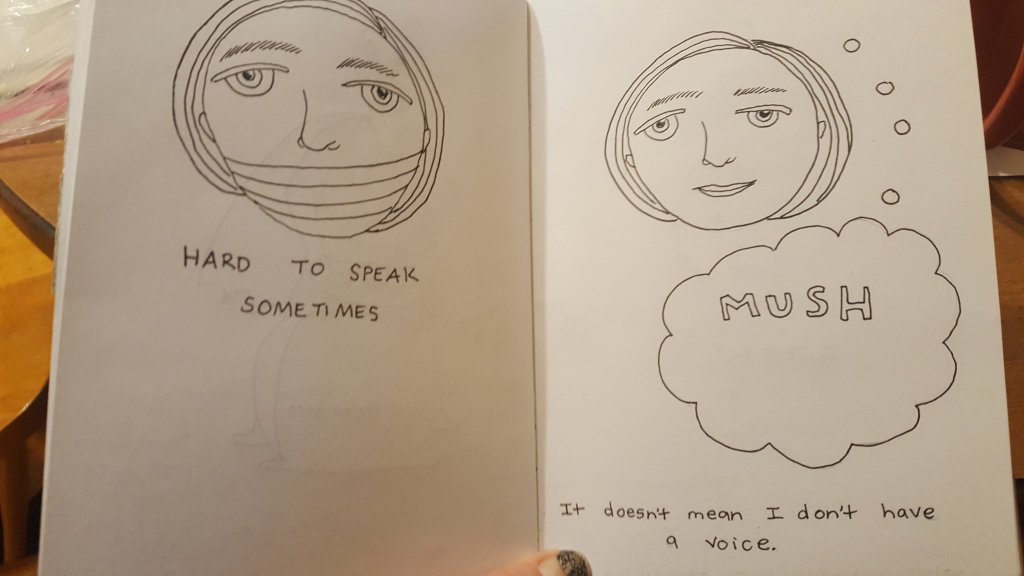 HARD TO SPEAK
SOMETIMES
MUSH
It doesn't mean I don't have
a voice.